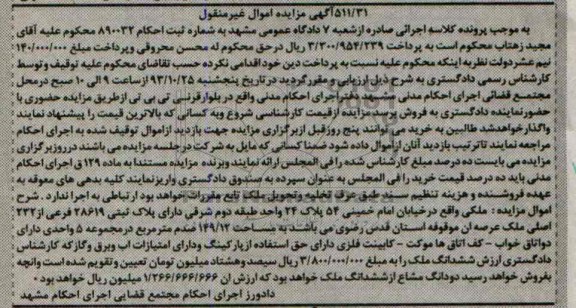 ۵۱۱/۳۱آگهی مزایده اموال غیرمنقول
به موجب پرونده کلاسه اجرائی صادره ازشعبه ۷ دادگاه عمومی مشهد به شماره ثبت احکام ۸۹۰۰۳۲ محکوم علیه آقای
مجید زهتاب محکوم است به پرداخت ۳/۳۰۰/۹۵۴/۲۳۹ ریال درحق محکوم له محسن محروقی وپرداخت مبلغ ۱۴۰/۰۰۰/۰۰۰
نیم عشردولت نظربه اینکه محکوم علیه نسبت به پرداخت دین خود اقدامی نکرده حسب تقاضای محکوم علیه توقیف و توسط
کارشناس رسمی دادگستری به شرح ذیل ارزیابی و مقررگردید در تاریخ پنجشنبه ۹۳/۱۰/۲۵ ازساعت ۹ الی ۱۰ صبح درمحل
مجتمع قضائی اجرای احکام مدنی اجرای احکام مدنی واقع در بلوارقرنی تی بی تی ازطریق مزایده حضوری با
حضورنماینده دادگستری به فروش برسد مزایده ازقیمت کارشناسی شروع وبه کسانی که بالاترین قیمت را پیشنهاد نمایند
واگذارخواهدشد طالبین به خرید می توانند پنج روزقبل ازبرگزاری مزایده جهت بازدید ازاموال توقیف شده به اجرای احکام
مراجعه نمایند تاترتیب بازدید آنان ازاموال داده شود ضمنا کسانی که مایل به شرکت درجلسه مزایده می باشند درروزبرگزاری
مزایده می بایست ده درصد مبلغ کارشناس شده رافی المجلس ارائه نمایند وبرنده مزایده مستندا به ماده ۱۲۹ ق اجرای احکام
مدنی باید ده درصد قیمت خرید رافی المجلس به عنوان سپرده به صندوق دادگستری واریزنمایند کلیه بدهی های معوقه به
عهده فروشنده و هزینه تنظیم سند طبق عرف تخلیه وتحویل ملک تابع مقررات خواهد بود ارتباطی به اجرا ندارد . شرح
اموال مزایده : ملکی واقع درخیابان امام خمینی ۵۴ پلاک ۲۴ واحد طبقه دوم شرقی دارای پلاک ثبتی ۲۸۶۱۹ فرعی از۲۳۲
اصلی ملک عرصه ان موقوفه استان قدس رضوی می باشد به مساحت ۱۴۹/۱۲ صدم مترمربع درمجموعه ۵ واحدی دارای
دواتاق خواب - کف اتاق ها موکت - کابینت فلزی دارای حق استفاده ازپارکینگ ودارای امتیازات اب وبرق وگازکه کارشناس
دادگستری ارزش ششدانگ ملک رابه مبلغ ۳/۸۰۰/۰۰۰/۰۰۰ ریال سیصد وهشتاد میلیون تومان تعیین وتقویم شده است وانچه
بفروش خواهد رسید دودانگ مشاع ازششدانگ ملک خواهد بود که ارزش ان ۱/۲۶۶/۶۶۶/۶۶۶ میلیون ریال خواهد بود .
دادورز اجرای احکام مجتمع قضایی اجرای احکام مشهد